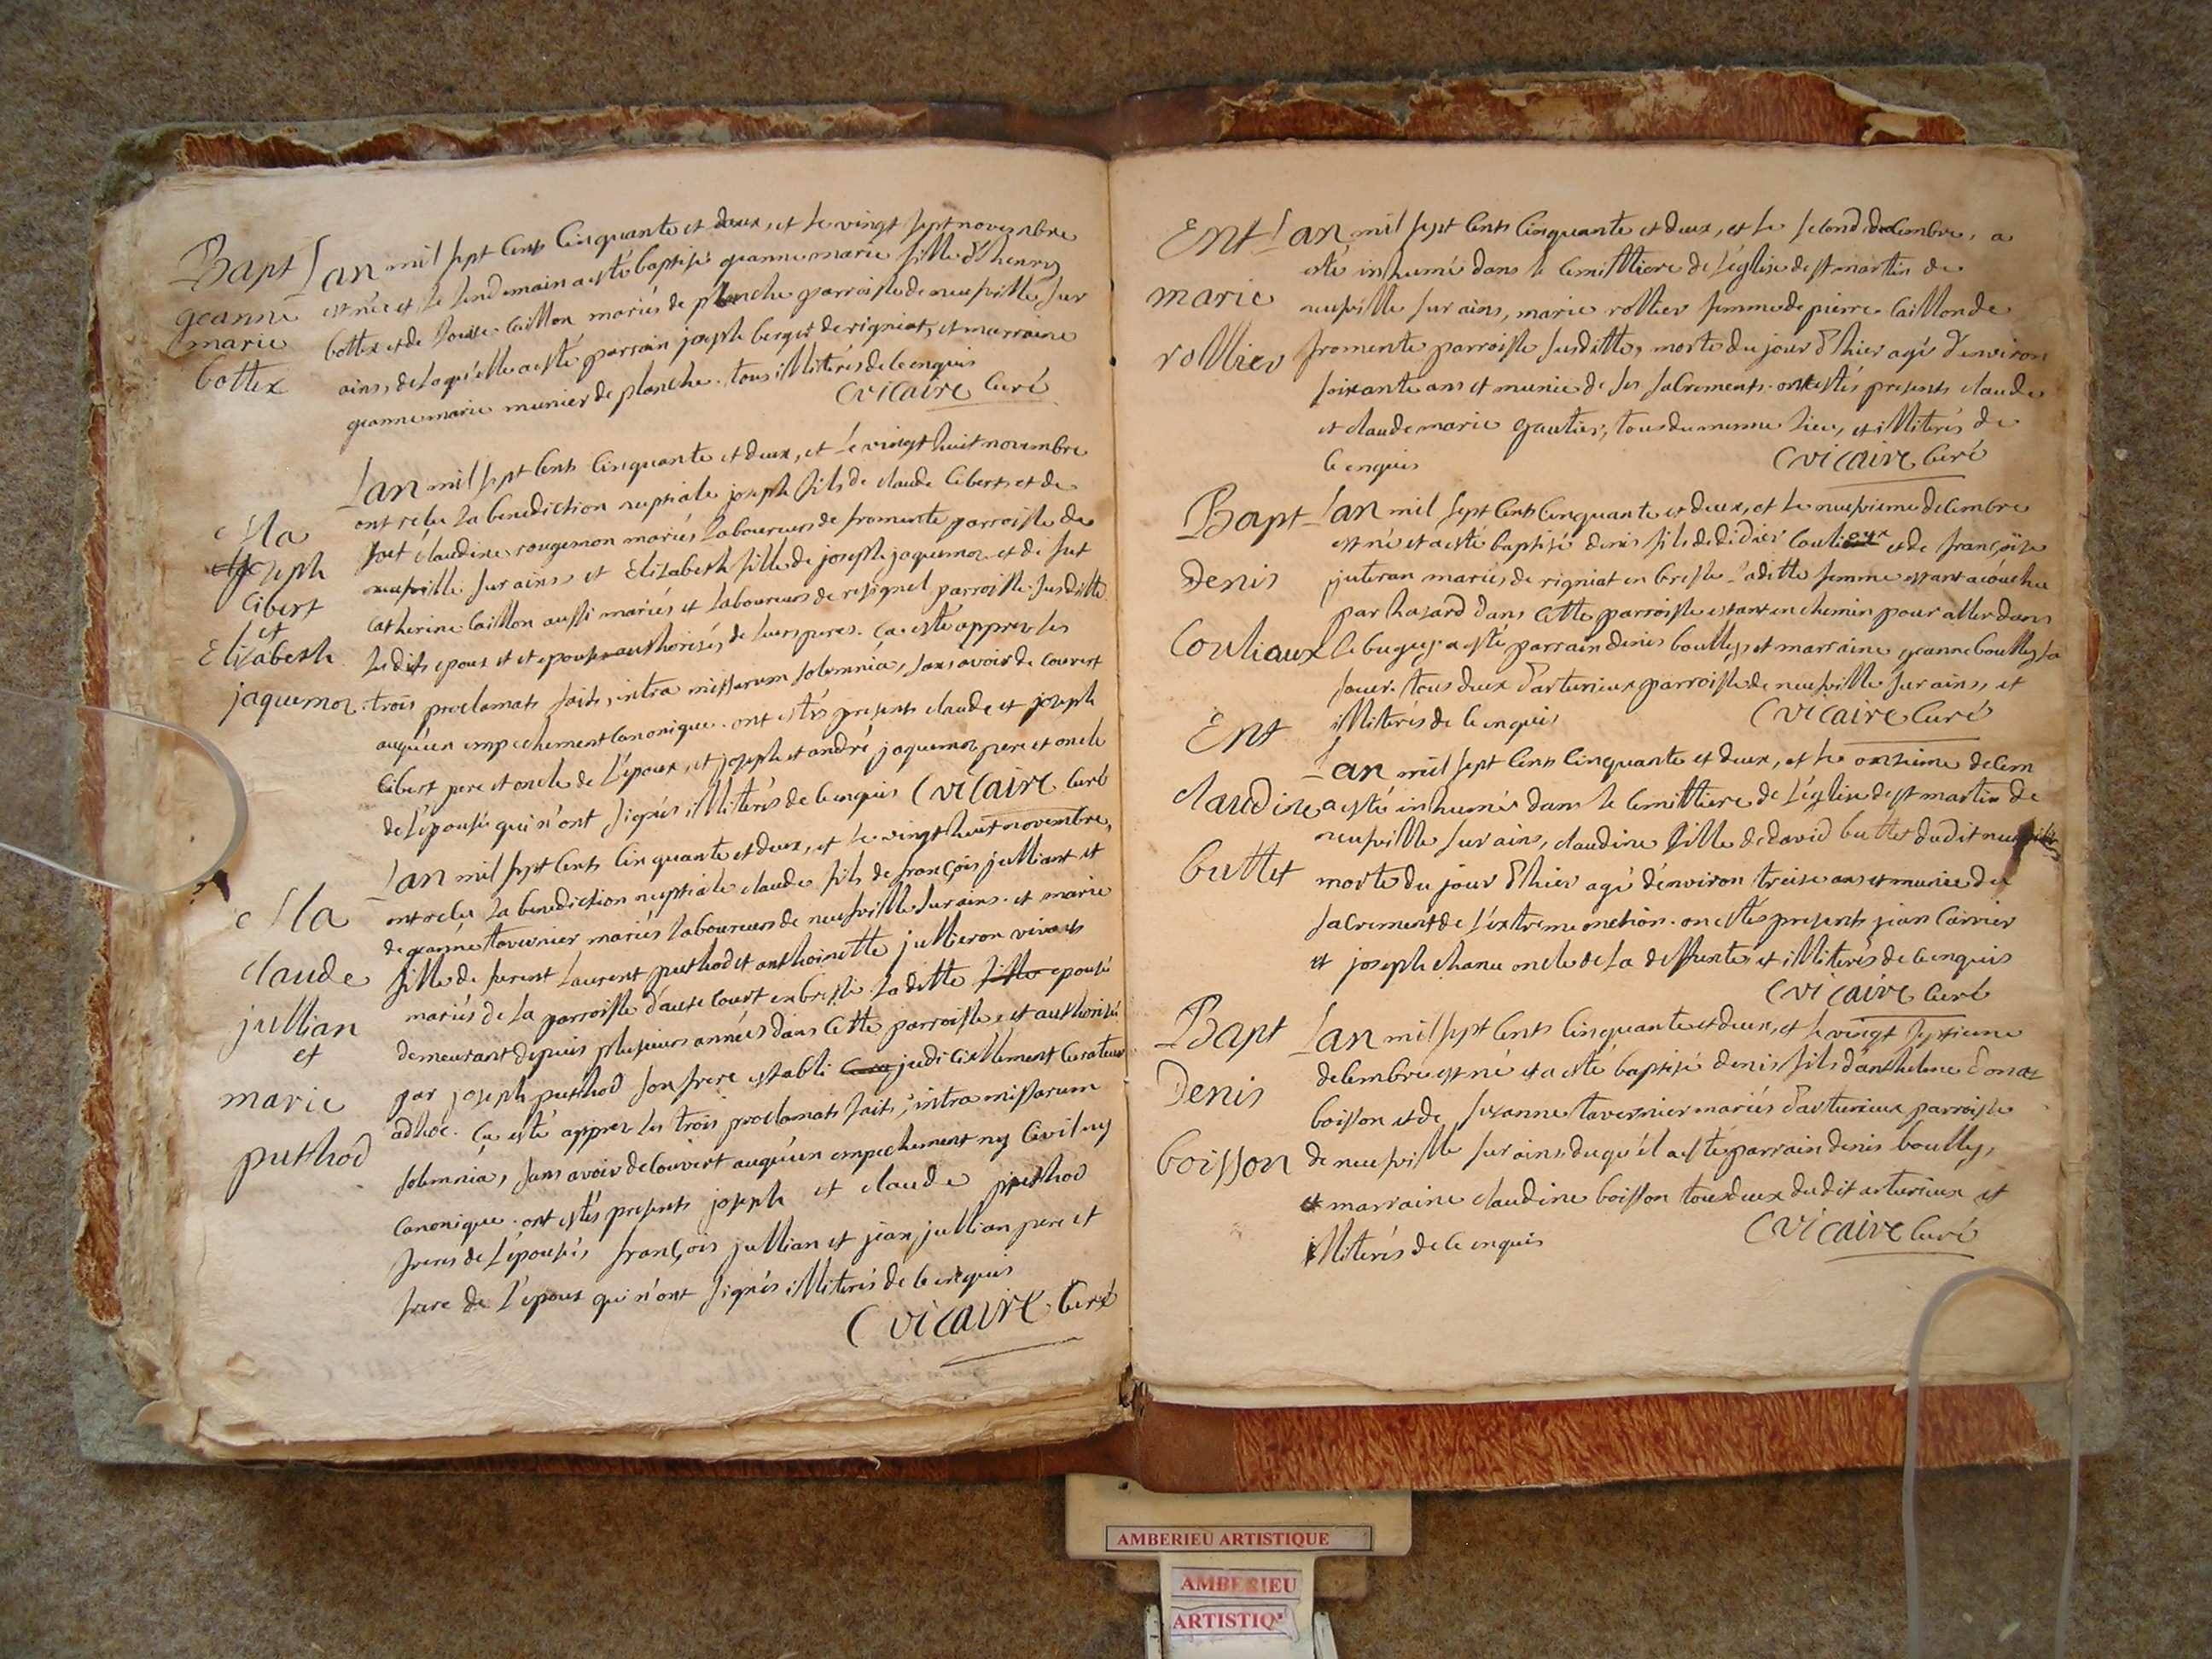 Bapt
geanne
marie
bottex
Lan mil sept cents cinquante et deux, et le vingt sept novembre
est née et le lendemain a esté baptisée geanne marie fille d'henry
bottex et de louise caillon mariés de planche parroisse de neufville sur
ains, de laquelle a esté parrain joseph berger de rigniat, et marraine
geanne marie munier de planche. tous illiterés de ce enquis
C vicaire curé
Ma
joseph
Cibert
et
Elizabeth
jaquemoz
Lan mil sept cents cinquante et deux, et le vingt huit novembre
ont reçu la benediction nuptiale joseph fils de claude Cibert et de
fut claudine rougemon mariés laboureurs de fromente parroisse de
neufville sur ains et Elizabeth fille de joseph jaquemoz et de fut
catherine caillon aussi mariés et laboureurs de resignel parroisse susditte
lesdits epoux et epouse authorisés de leurs peres. ca esté apprez les
trois proclamats faits, intra missarum solemnia, sans avoir decouvert
auqu'un empechement canonique. ont estés presents claude et joseph
Cibert pere et oncle de l'epoux, et joseph et andré jaquemoz pere et oncle
de l'epouse qui n'ont signés illiterés de ce enquis C vicaire curé
Ma
claude
jullian
et
marie
puthod
Lan mil sept cents cinquante et deux, et le vingt huit novembre,
ont reçu la benediction nuptiale claude fils de françois julliant et
de geanne tavernier mariés laboureurs de neufville sur ains. et marie
fille de furent laurent puthod et anthoinette jullieron vivants
mariés de la parroisse d'autecourt en bresse. la ditte fille epouse
demeurant depuis plusieurs années dans cette parroisse et authorisée
par joseph puthod son frere establi judiciellement curateur
adhoc. ça esté apprez les trois proclamats faits, intra missarum
solemnia, sans avoir decouvert auqu'un empechement ny civil ny
canonique. ont estés presents joseph et claude puthod
freres de l'epouse, françois jullian et jean jullian pere et
frere de l'epoux qui n'ont signés illiterés de ce enquis
C vicaire curé
Ent
marie
rollier
Lan mil sept cents cinquante et deux, et le second decembre, a
esté inhumé dans le cemittiere de l'église de st martin de
neufville sur ains, marie rollier femme de pierre caillon de
fromente parroisse susditte, morte du jour d'hier agé d'environ
soixante ans et munie de ses sacrements. ont estés presents claude
et claude marie gautier, tous du mesme lieu, et illiterés de
ce enquis
C vicaire curé
Bapt
Denis
Couliaux
Lan mil sept cents cinquante et deux, et le neufvieme decembre
est né et a esté baptisé denis fils de didier et de françoise
juteran mariés de rigniat en bresse. laditte femme estant acouchee
par hasard dans cette parroisse estant en chemin pour aller dans
le bugey. a esté parrain denis boully, et marraine geanne boully sa
soeur. tous deux d'arturieux parroisse de neufville sur ains, et
illiterés de ce enquis
C vicaire curé
Ent
claudine
buttet
Lan mil sept cents cinquante et deux, et le onzieme decem
a esté inhumée dans le cemittiere de l'église de st martin de
neufville sur ains, claudine fille de david buttet dudit neufville
morte du jour d'hier agé d'environ treise ans et munie du
sacrement de l'extreme onction. on estés presents jean carrier
et joseph chanu oncle de la deffunte, et illiterés de ce enquis
C vicaire curé
Bapt
Denis
boisson
Lan mil sept cents cinquante et deux, et le vingt septieme
decembre est né et a esté baptisé denis fils d'anthelme donat
boisson et de suzanne tavernier mariés d'arturieux parroisse
de neufville sur ains duqu'el a esté parrain denis boully,
et marraine claudine boisson tous deux dudit arturieux et
illiterés de ce enquis
C vicaire curé
AMBERIEU ARTISTIQUE
AMBERIEU
ARTISTIQ